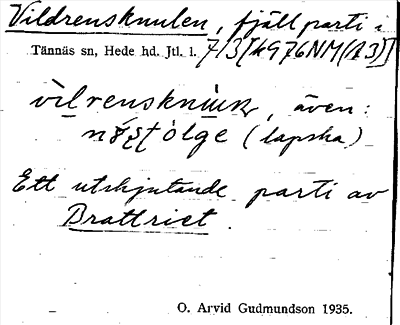 Vildrensknulen, fjällparti i
Tännäs sn, Hede hd. Jtl. l. 7/3 [4976NM(A3)]
även:
(lapska)
Ett utskjutande parti av
Brattriet.
O. Arvid Gudmundson 1935.